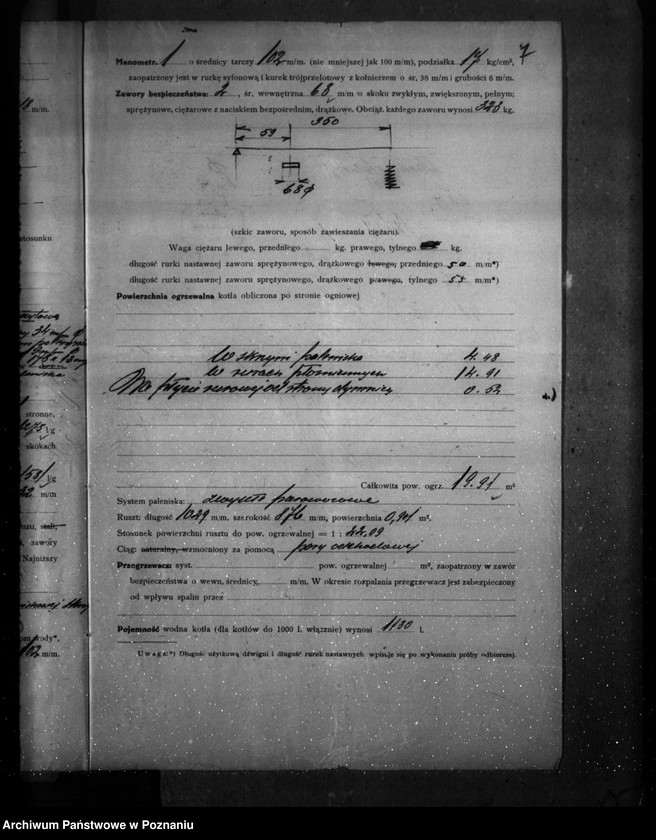 7
Manometr. 1 o średnicy tarczy 102 m/m. (nie mniejszej jak 100 m/m), podziałka 17 kg/cm²,
zaopatrzony jest w rurkę syfonową i kurek trójprzelotowy z kołnierzem o śr. 38 m/m i grubości 6 m/m.
Zawory bezpieczeństwa: 2, śr. wewnętrzna 68 m/m o skoku zwykłym, zwiększonym, pełnym;
sprężynowe, ciężarowe z naciskiem bezpośrednim, drążkowe. Obciąż. każdego zaworu wynosi 328 kg.
350
59
68 ϕ
(szkic zaworu, sposób zawieszania ciężaru).
Waga ciężaru lewego, przedniego kg. prawego, tylnego kg.
długość rurki nastawnej zaworu sprężynowego, drążkowego lewego, przedniego 50 m/m*)
długość rurki nastawnej zaworu sprężynowego, drążkowego prawego, tylnego 53 m/m*)
Powierzchnia ogrzewalna kotła obliczona po stronie ogniowej
W skrzyni paleniska 4.48
W rurach płomiennych 14.91
Na płycie rurowej od strony dymnicy 0.52
Całkowita pow. ogrz. 19.91 m²
System paleniska: zwykłe parowozowe
Ruszt: długość 1029 m/m. szerokość 876 m/m, powierzchnia 0,901 m².
Stosunek powierzchni rusztu do pow. ogrzewalnej = 1 : 22,09
Ciąg: naturalny, wzmocniony za pomocą pary odlotowej
Przegrzewacz: syst. pow. ogrzewalnej m², zaopatrzony w zawór
bezpieczeństwa o wewn. średnicy, m/m. W okresie rozpalania przegrzewacz jest zabezpieczony
od wpływu spalin przez
Pojemność wodna kotła (dla kotłów do 1000 l. włącznie) wynosi 1130 l.
Uwaga: *) Długość użytkową dźwigni i długość rurek nastawnych wpisuje się po wykonaniu próby odbiorczej.
m/m.
stosunku
stronne,
skokach
m/m
zawory
Najniższy
102 m/m.
Archiwum Państwowe w Poznaniu